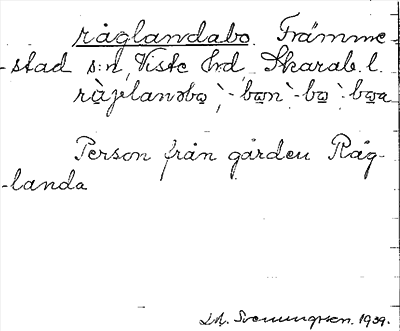 råglandabo. Främme-
-stad s:n, Viste hrd, Skarab. l.
-bo̤n -bo̤ -bo̤a
Person från gården Råg-
-landa
Svenungsson. 1939.